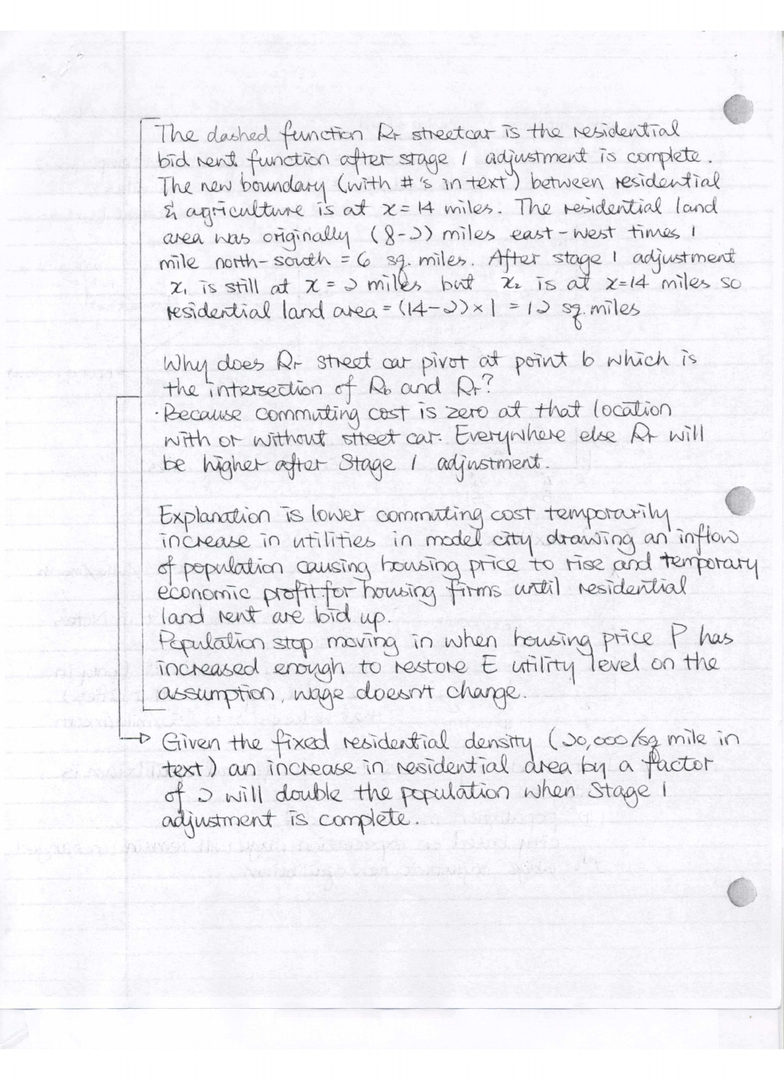 The dashed function Rr streetcar is the residential
bid rent function after stage 1 adjustment is complete.
The new boundary (with #'s in text) between residential
& agriculture is at x = 14 miles. The residential land
area was originally (8-2) miles east-west times 1
mile north-south = 6 sq. miles. After stage 1 adjustment
x₁ is still at x = 2 miles but x₂ is at x=14 miles so
residential land area = (14-2)×1 = 12 sq. miles
Why does Rr street car pivot at point b which is
the intersection of Rb and Rr?
· Because commuting cost is zero at that location
with or without street car. Everywhere else Rr will
be higher after Stage 1 adjustment.
Explanation is lower commuting cost temporarily
increase in utilities in model city drawing an inflow
of population causing housing price to rise and temporary
economic profit for housing firms until residential
land rent are bid up.
Population stop moving in when housing price P has
increased enough to restore E utility level on the
assumption, wage doesn't change.
→ Given the fixed residential density (20,000/sq mile in
text) an increase in residential area by a factor
of 2 will double the population when Stage 1
adjustment is complete.